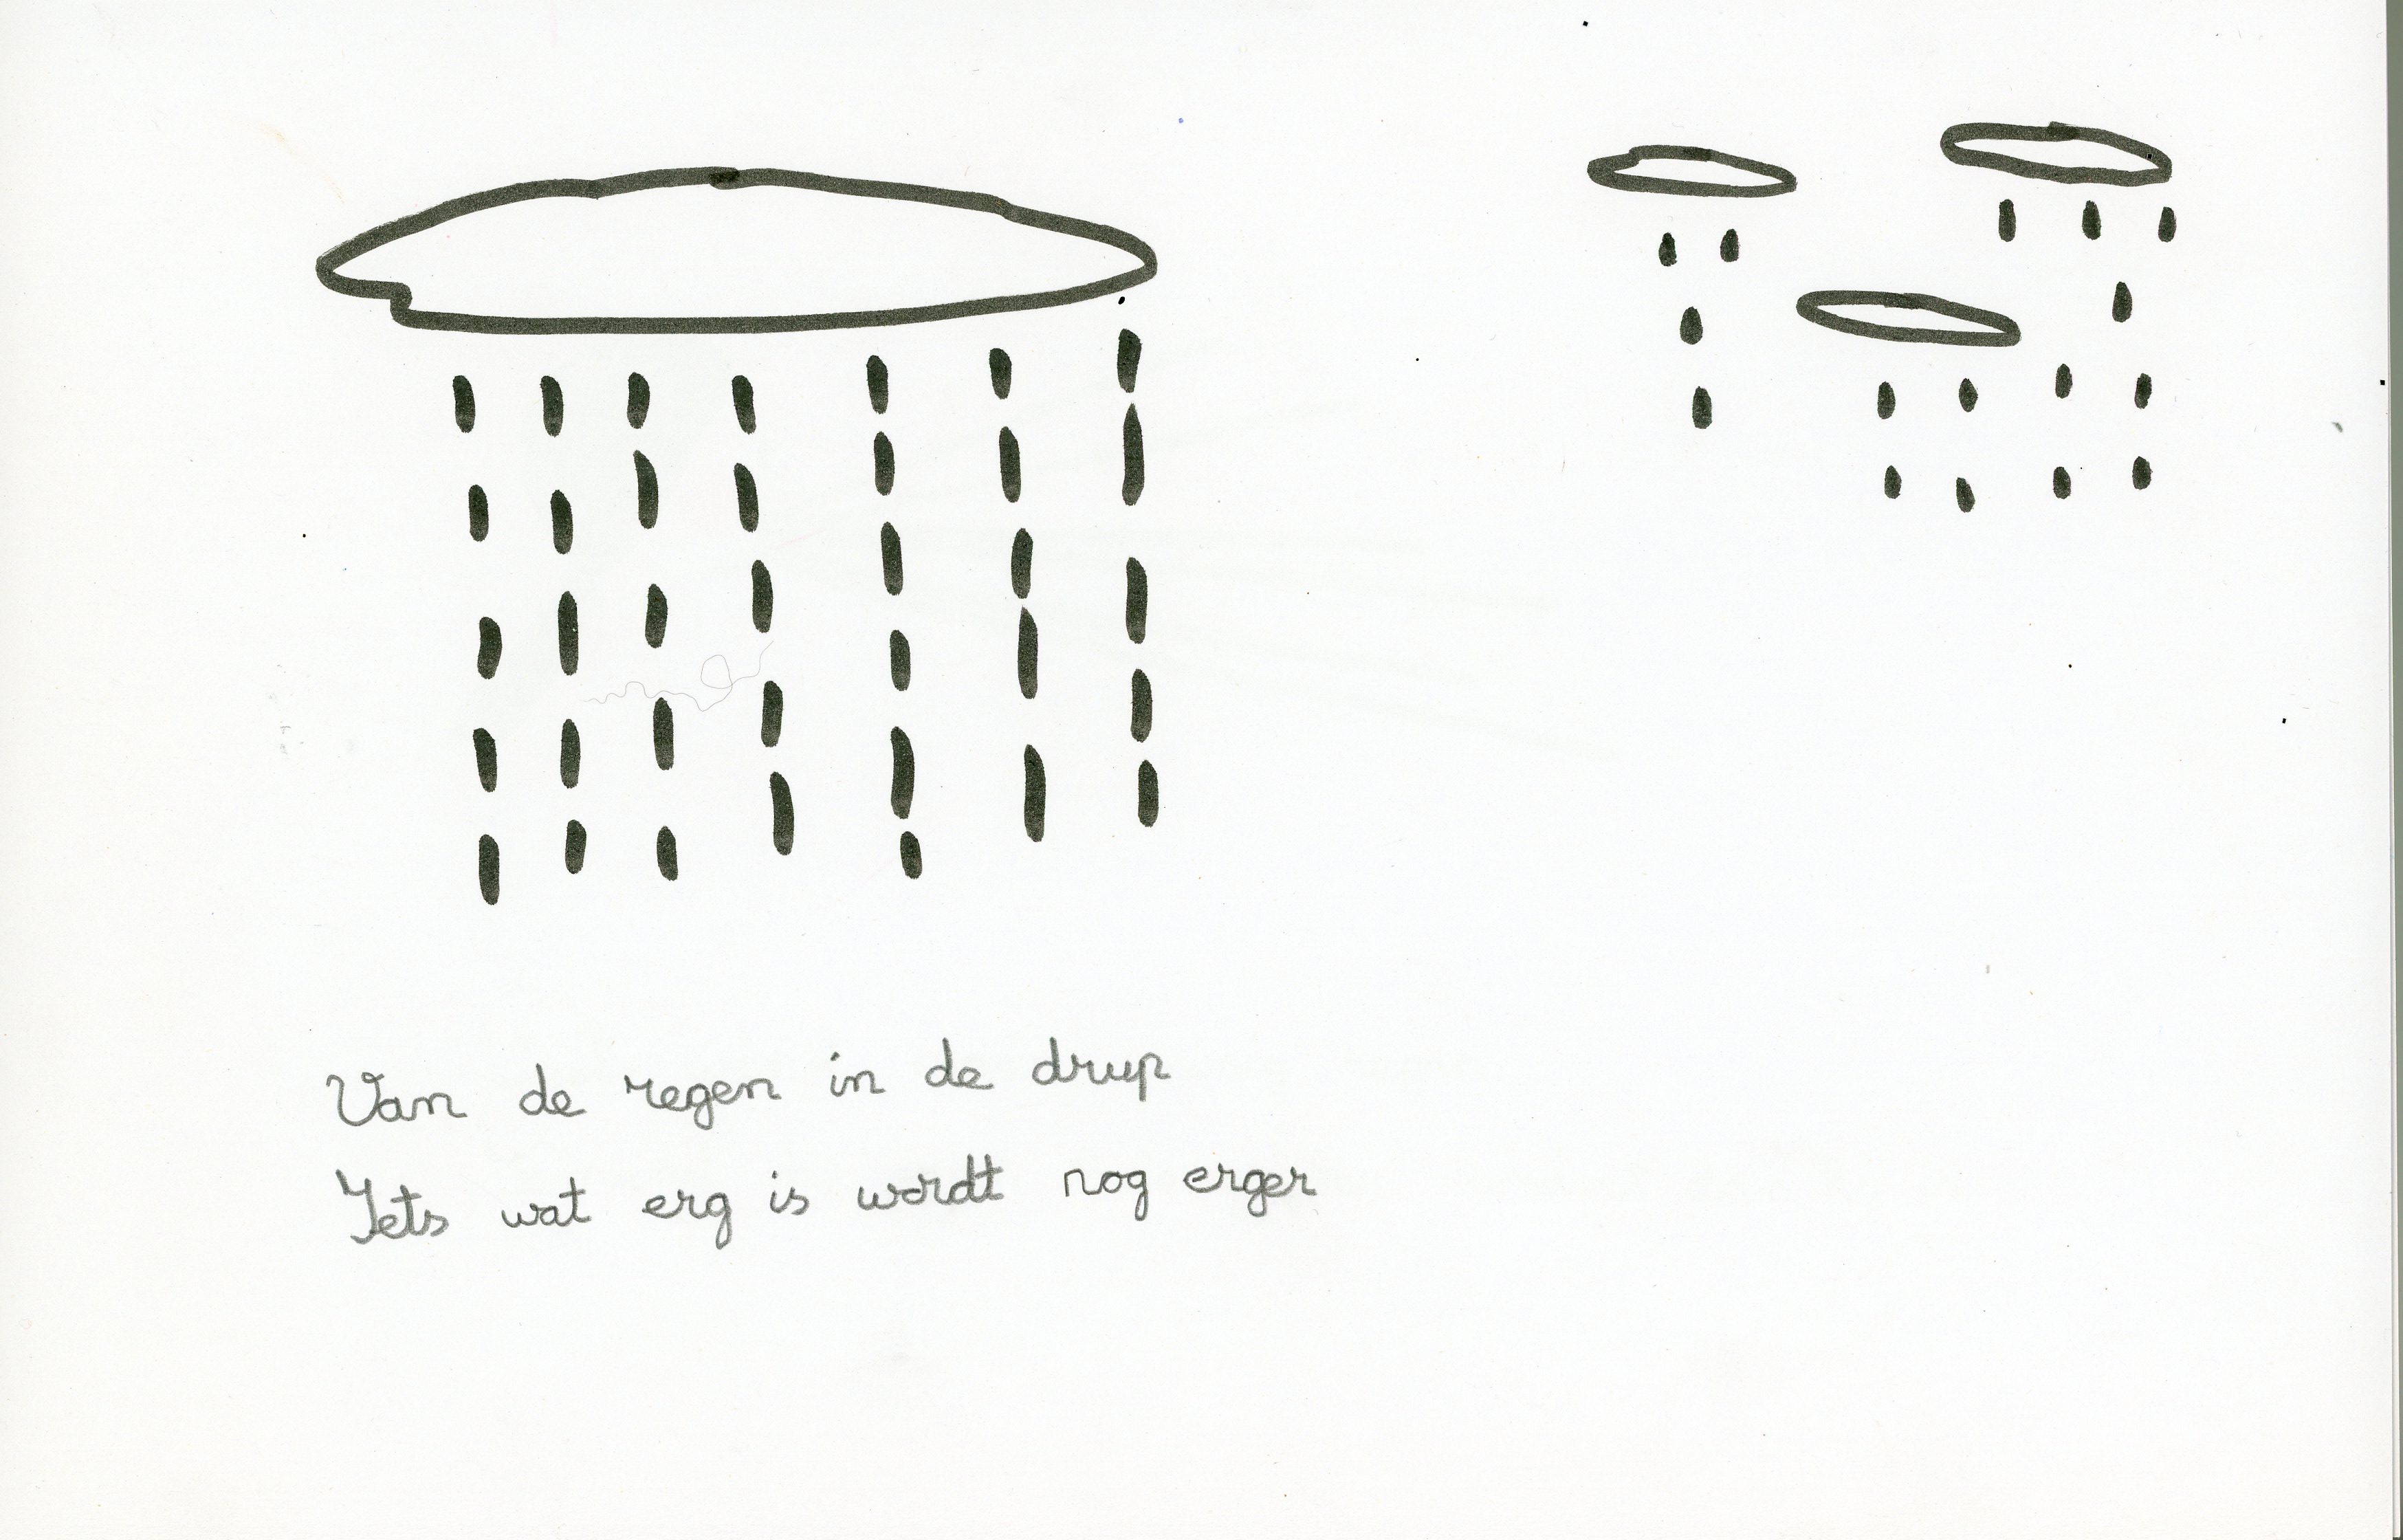 Van de regen in de drup
Iets wat erg is wordt nog erger